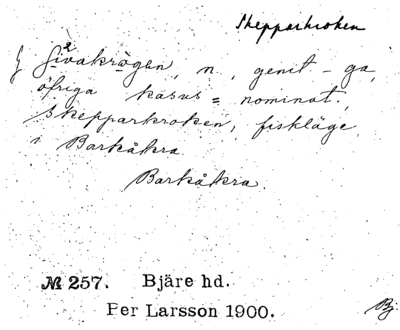 Skepparkroken
§ Sivakrògen, n., genit - ga,
öfriga kasus = nominat.,
Skepparkroken, fiskläge
i Barkåkra
Barkåkra.
№ 257. Bjäre hd.
Per Larsson 1900.
Bj